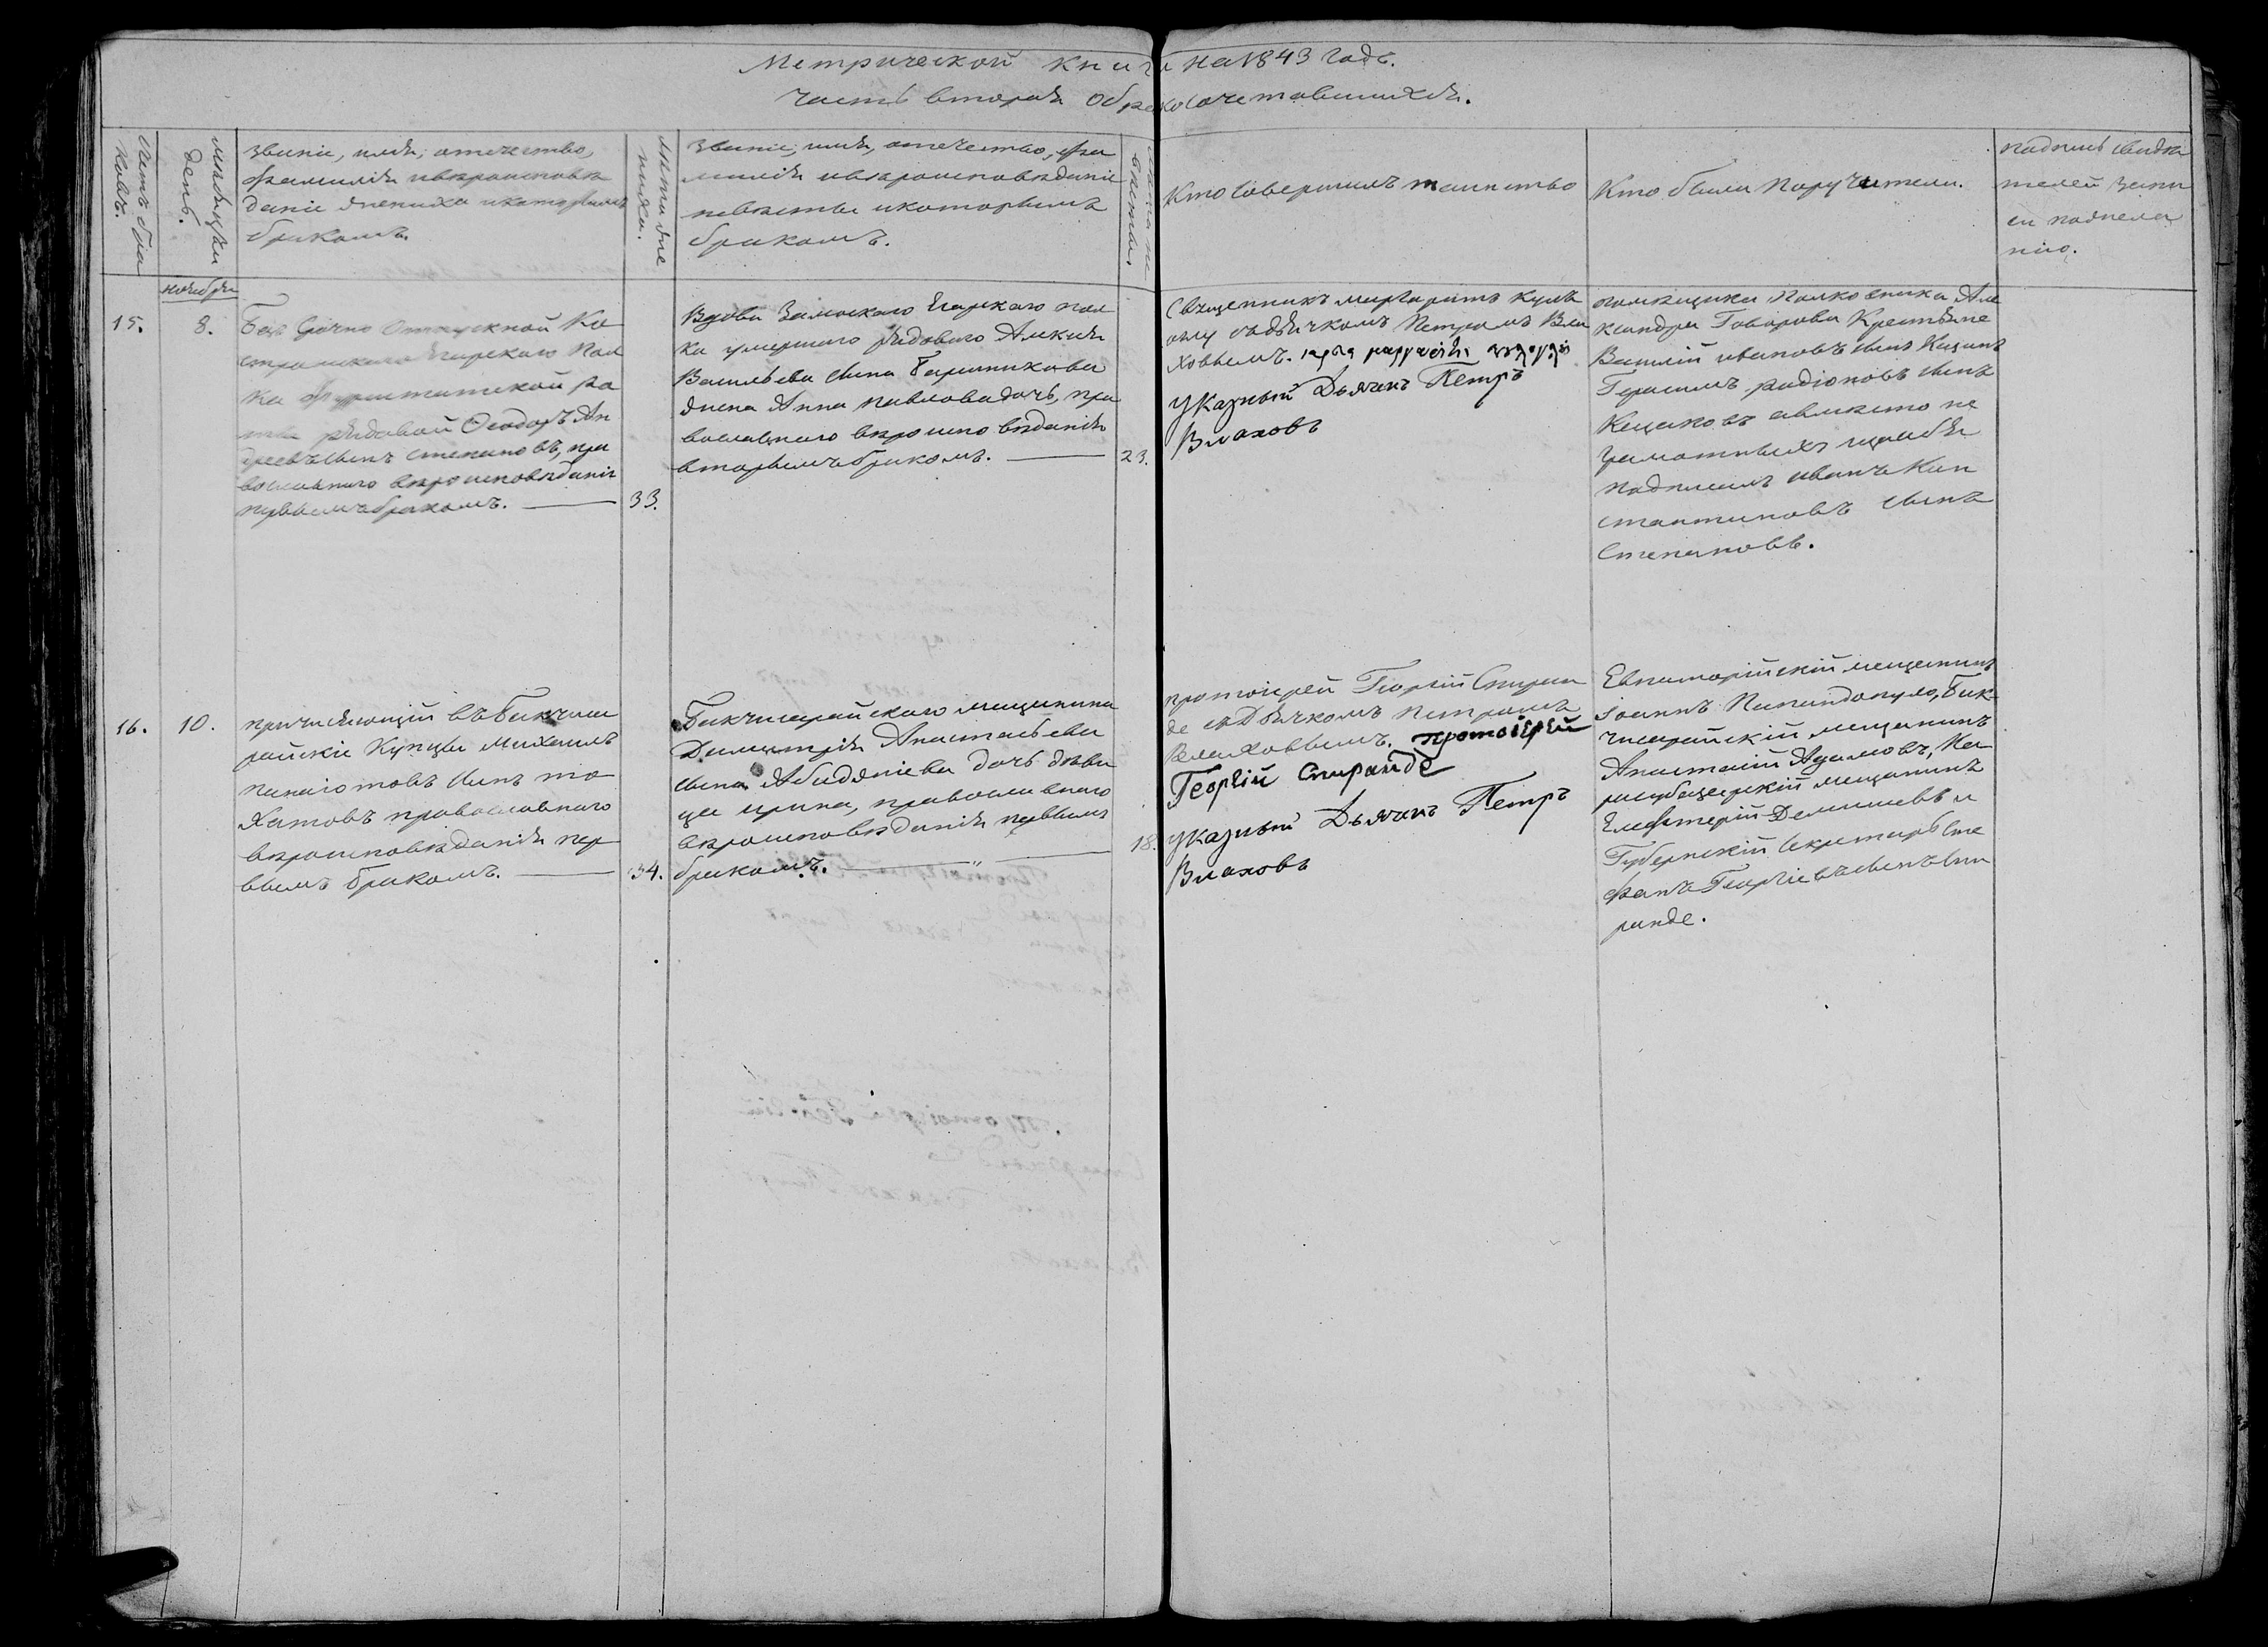 Метрической книги на 1843 годъ.
Часть вторая о бракосочетавшихся.
Счетъ бра
ковъ.
Мѣсяцъ и
день.
Званіе, имя, отечество,
фамилія и вѣроисповѣ
даніе жениха и которымъ
бракомъ.
Лѣта же
ниха.
Званіе, имя, отечество, фа
милія и вѣроисповѣданіе
невѣсты и которымъ
бракомъ.
Лѣта не
вѣсты.
Кто совершилъ таинство
Кто были поручители.
Подпись свидѣ
телей запи
си по жела
нію.
ноября
15.
8.
Без Срочно Отпускной Ко
стромскаго Егерскаго Пол
ка Фурштатской ро
ты рядовой Ѳеодоръ Ан
дреевъ сынъ Степановъ, пра
вославнаго вѣроисповѣданія
первымъ бракомъ.
33.
Вдова Замоскаго Егерскаго пол
ка умершаго рядоваго Алексѣя
Васильева сына
жена Анна Павлова дочь, пра
вославнаго вѣроисповѣданія
вторымъ бракомъ.
23.
Священникъ Маргаритъ
съ дьячкомъ Петромъ Вла
ховымъ.
Указный Дьячокъ Петръ
Влаховъ
помѣщика Полковника Але
ксандра Говорова Крестьяне
Василій Ивановъ сынъ
Герасимъ Радіоновъ сынъ
а вмѣсто не
грамотныхъ и за себя
подписалъ Иванъ Кон
стантиновъ сынъ
Степановъ.
16.
10.
Причисляющій въ Бакчиса
райскіе Купцы Михаилъ
Панаіотовъ сынъ То
хатовъ православнаго
вѣроисповѣданія пер
вымъ бракомъ.
34.
Бакчисарайскаго мещанина
Димитрія Анастасьева
сына Абиджіева дочь дѣви
ца Ирина, православнаго
вѣроисповѣданія первымъ
бракомъ.
18.
Протоіерей Георгій Спиран
де съ Дьячкомъ Петромъ
Влаховымъ. Протоіерей
Георгій Спиранде
Указный Дьячокъ Петръ
Влаховъ
Евпаторійскій мещанинъ
Іоаннъ Папандопуло, Бак-
чисарайскій мещанинъ
Анастасій Адамовъ, Ка
расубазарскій мещанинъ
Елефтерій Демишевъ и
Губернскій Секретарь Сте
фанъ Георгіевъ сынъ Спи
ранде.